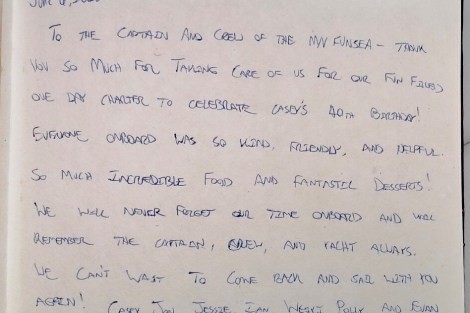 June
To the Captain and Crew of the M/V Funsea – Thank
you so much for taking care of us for our fun filled
one day charter to celebrate Casey's 40th Birthday!
Everyone onboard was so kind, friendly, and helpful.
So much incredible food and fantastic desserts!
We will never forget our time onboard and will
remember the captain, crew, and yacht always.
We can't wait to come back and sail with you
again! Casey Jon Jessie Ian Wesky Polly and Evan